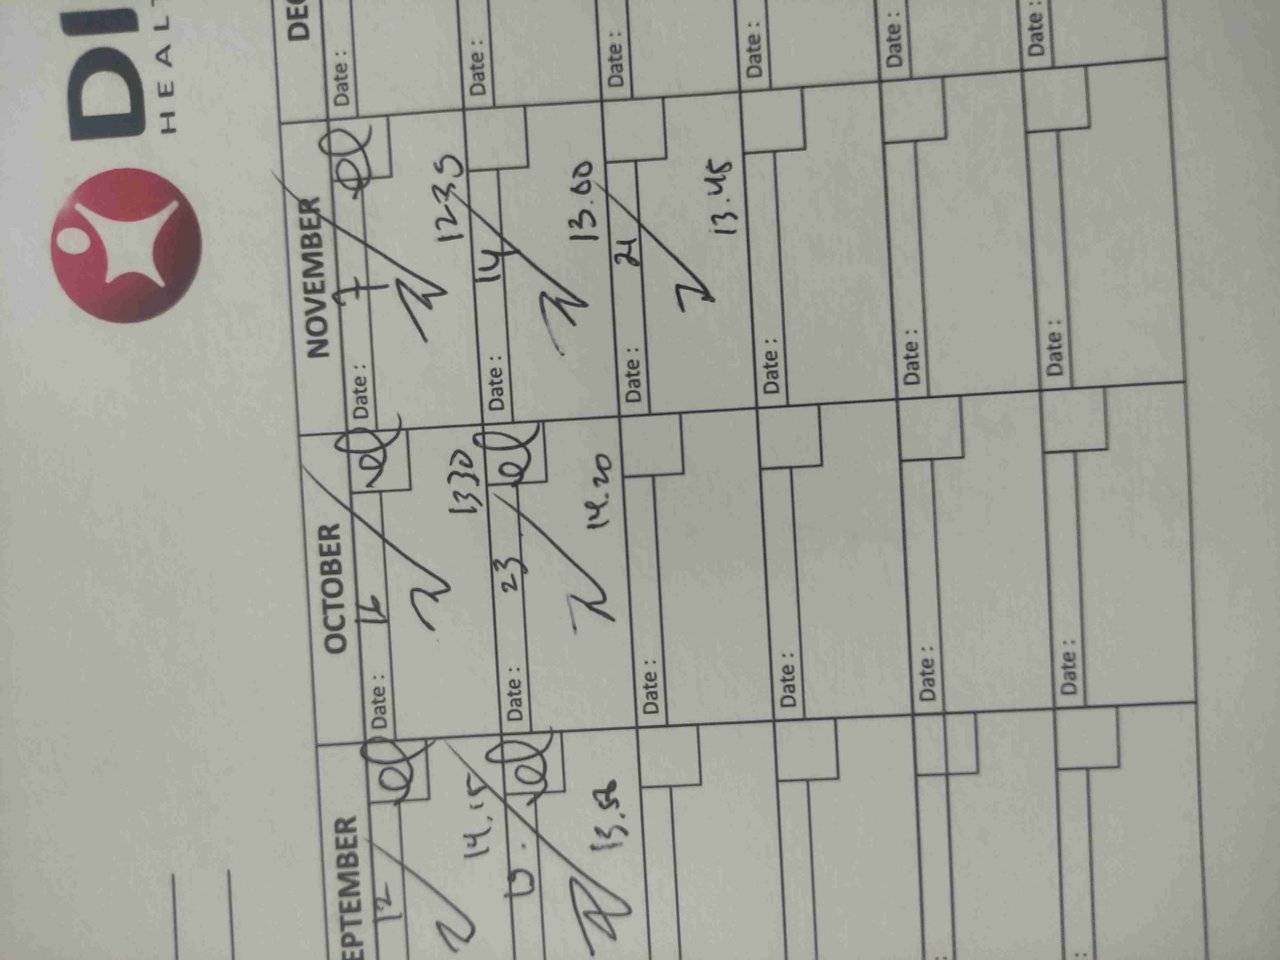 DI
HEALT
EPTEMBER
OCTOBER
NOVEMBER
DEC
12
Date : 16
Date : 7
Date :
14.15
1330
1235
Date : 23
Date : 14
Date :
13.56
14.20
13.00
Date :
Date : 21
Date :
13.45
Date :
Date :
Date :
Date :
Date :
Date :
:
Date :
Date :
Date :